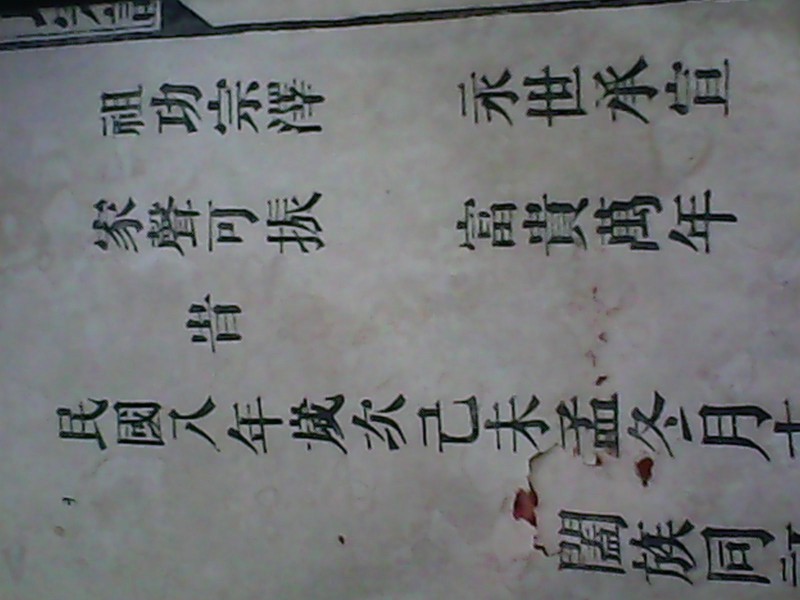 祖功宗澤 永世承宣
家聲可振 富貴萬年
旹
民國八年歲次己未孟冬月
闔族同